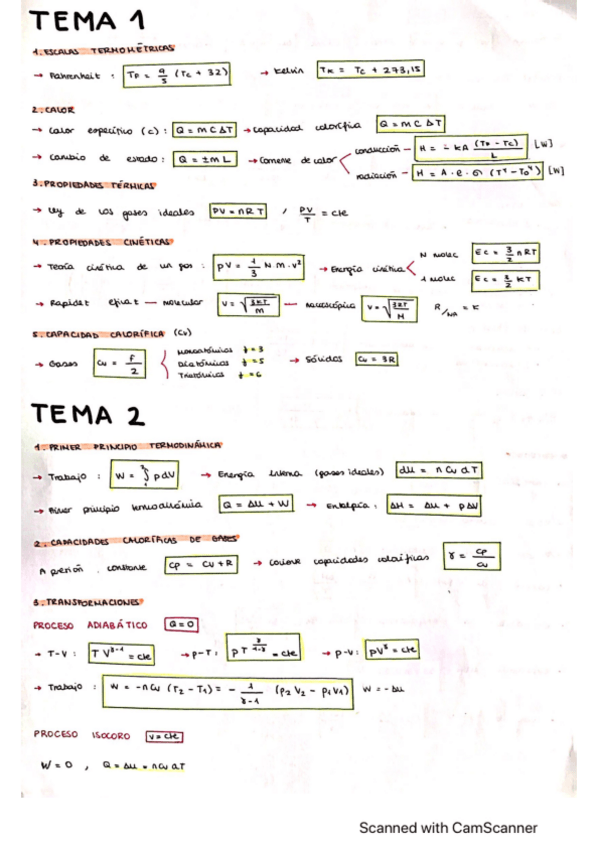 TEMA 1
1. ESCALAS TERMOMÉTRICAS
→ Fahrenheit : TF = 9/5 (Tc + 32) → Kelvin TK = Tc + 273,15
2. CALOR
→ Calor específico (c) : Q = m C ΔT → Capacidad calorífica Q = m C ΔT
→ Cambio de estado : Q = ± m L → Corriente de calor conducción – H = - kA (TF - TC)/L [W]
radiación – H = A · e · σ (T⁴ - To⁴) [W]
3. PROPIEDADES TÉRMICAS
→ Ley de los gases ideales PV = nRT , PV/T = cte
4. PROPIEDADES CINÉTICAS
→ Teoría cinética de un gas : pV = 1/3 N·m·v² → Energía cinética N molec Ec = 3/2 nRT
1 molec Ec = 3/2 KT
→ Rapidez eficaz — molecular v = √(3KT/m) — macroscópica v = √(3RT/M) R/NA = K
5. CAPACIDAD CALORÍFICA (Cv)
→ Gases Cv = f/2 Monoatómicos f = 3 → Sólidos Cv = 3R
Diatómicos f = 5
Triatómicos f = 6
TEMA 2
1. PRIMER PRINCIPIO TERMODINÁMICA
→ Trabajo : W = ∫₁² p dV → Energía interna (gases ideales) dU = n Cv dT
→ Primer principio termodinámica Q = ΔU + W → Entalpía : ΔH = ΔU + pΔV
2. CAPACIDADES CALORÍFICAS DE GASES
A presión constante Cp = Cv + R → Cociente capacidades caloríficas γ = Cp/Cv
3. TRANSFORMACIONES
PROCESO ADIABÁTICO Q = 0
→ T-V : T V^(γ-1) = cte → p-T : p T^(γ/(1-γ)) = cte → p-V : pV^γ = cte
→ Trabajo : W = -nCv (T2 - T1) = - 1/(γ-1) (p2 V2 - p1 V1) W = -ΔU
PROCESO ISOCORO V = cte
W = 0 , Q = ΔU = n Cv ΔT
Scanned with CamScanner